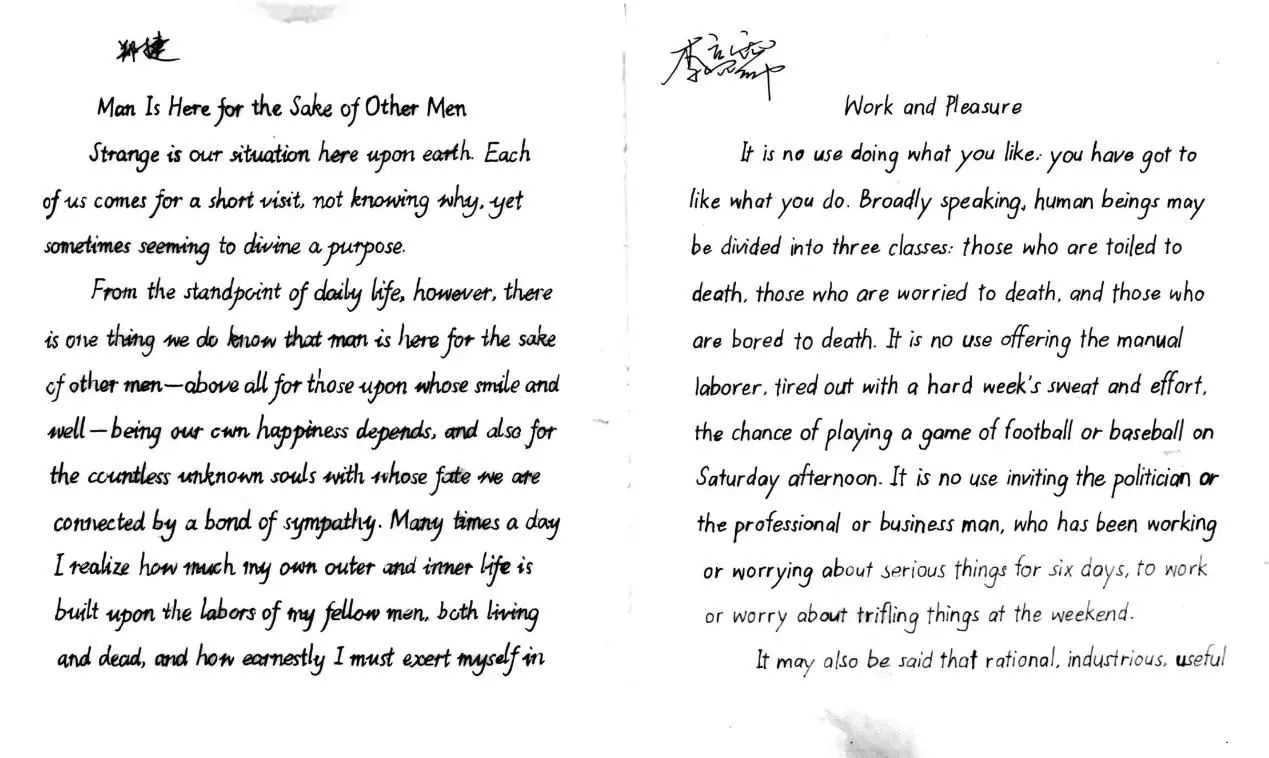 郑捷
Man Is Here for the Sake of Other Men
Strange is our situation here upon earth. Each
of us comes for a short visit, not knowing why, yet
sometimes seeming to divine a purpose.
From the standpoint of daily life, however, there
is one thing we do know that man is here for the sake
of other men—above all for those upon whose smile and
well—being our own happiness depends, and also for
the countless unknown souls with whose fate we are
connected by a bond of sympathy. Many times a day
I realize how much my own outer and inner life is
built upon the labors of my fellow men, both living
and dead, and how earnestly I must exert myself in
Work and Pleasure
It is no use doing what you like; you have got to
like what you do. Broadly speaking, human beings may
be divided into three classes: those who are toiled to
death, those who are worried to death, and those who
are bored to death. It is no use offering the manual
laborer, tired out with a hard week's sweat and effort,
the chance of playing a game of football or baseball on
Saturday afternoon. It is no use inviting the politician or
the professional or business man, who has been working
or worrying about serious things for six days, to work
or worry about trifling things at the weekend.
It may also be said that rational, industrious, useful